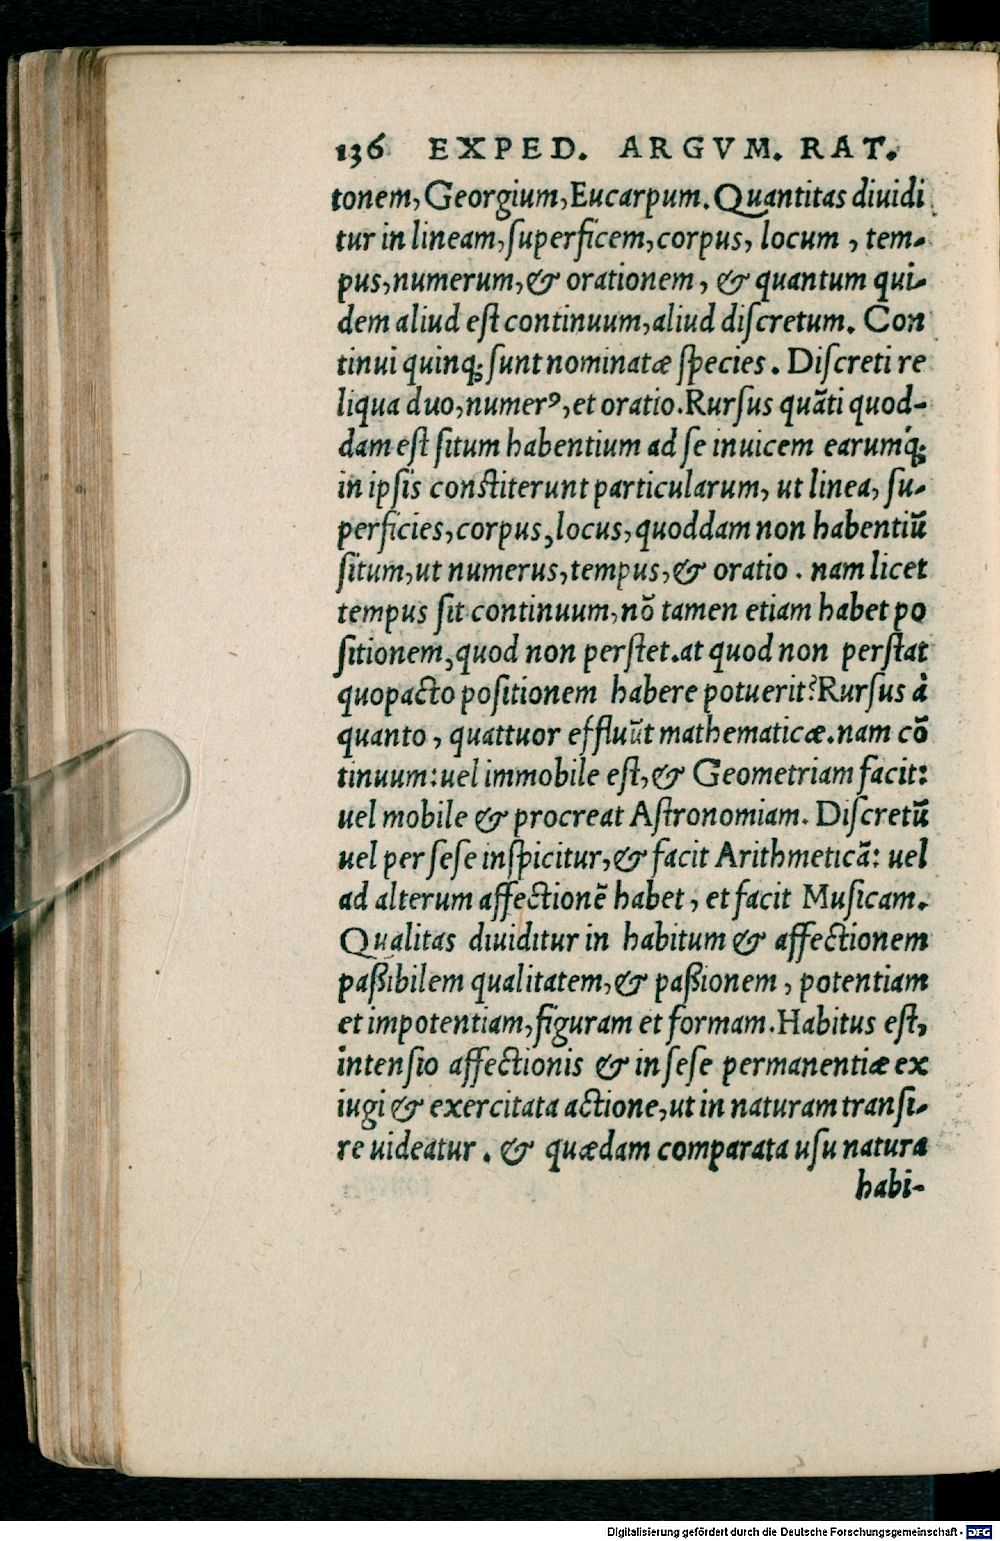 136 EXPED. ARGVM. RAT.
tonem, Georgium, Eucarpum. Quantitas diuidi
tur in lineam, ſuperficem, corpus, locum , tem-
pus, numerum, & orationem , & quantum qui-
dem aliud eſt continuum, aliud diſcretum. Con
tinui quinq; ſunt nominatæ ſpecies . Diſcreti re
liqua duo, numerꝰ, et oratio. Rurſus quãti quod-
dam eſt ſitum habentium ad ſe inuicem earumq́;
in ipſis conſtiterunt particularum, ut linea, ſu-
perficies, corpus, locus, quoddam non habentiũ
ſitum, ut numerus, tempus, & oratio . nam licet
tempus ſit continuum, nõ tamen etiam habet po
ſitionem, quod non perſtet. at quod non perſtat
quopacto poſitionem habere potuerit? Rurſus à
quanto , quattuor effluũt mathematicæ. nam cõ
tinuum: uel immobile eſt, & Geometriam facit:
uel mobile & procreat Aſtronomiam. Diſcretũ
uel per ſeſe inſpicitur, & facit Arithmeticã: uel
ad alterum affectionẽ habet , et facit Muſicam.
Qualitas diuiditur in habitum & affectionem
paßibilem qualitatem, & paßionem , potentiam
et impotentiam, figuram et formam. Habitus eſt,
intenſio affectionis & in ſeſe permanentiæ ex
iugi & exercitata actione, ut in naturam tranſi-
re uideatur . & quædam comparata uſu natura
habi-
Digitalisierung gefördert durch die Deutsche Forschungsgemeinschaft - DFG